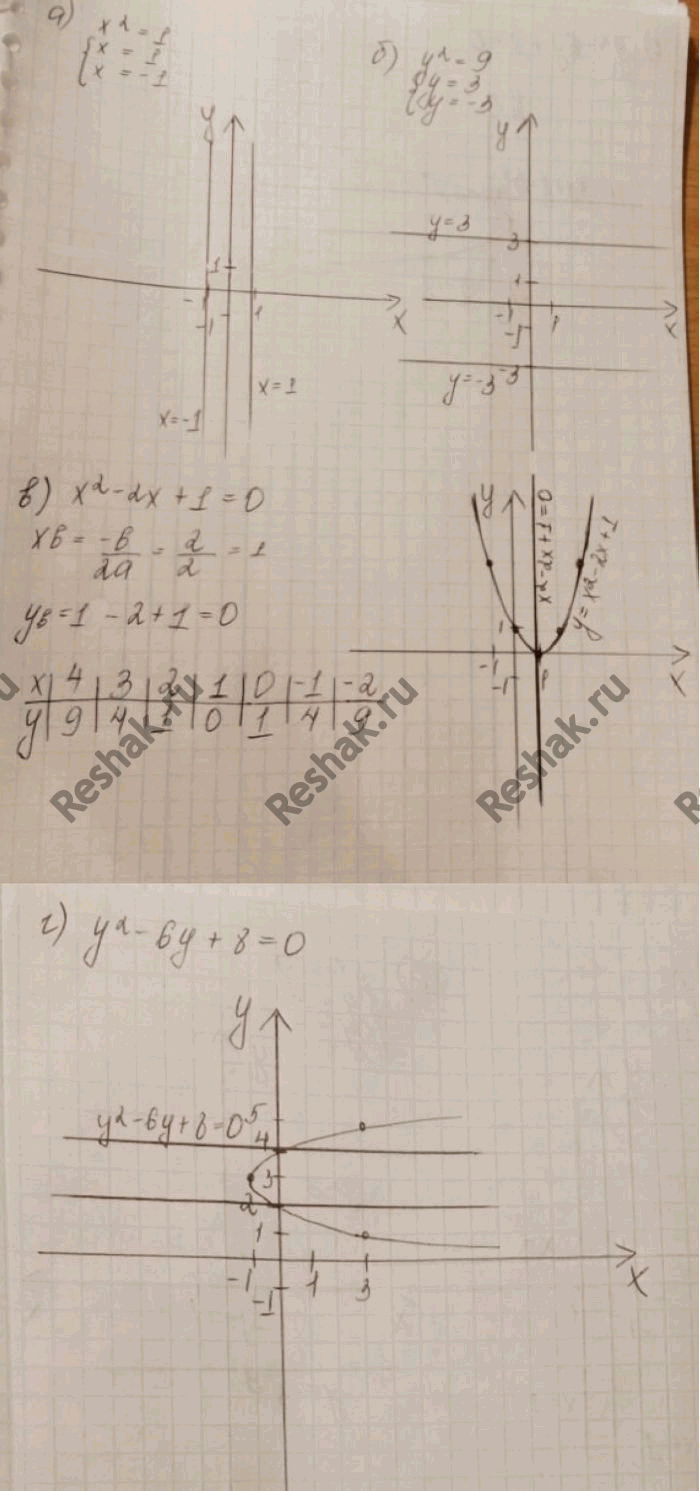 а) x² = 1
{ x = 1
x = -1
б) y² = 9
{ y = 3
y = -3
y
1
-1
-1
1
x
x = 1
x = -1
y
y = 3
3
1
-1
-1
1
x
y = -3
-3
в) x² - 2x + 1 = 0
xв = -в/2а = 2/2 = 1
yв = 1 - 2 + 1 = 0
x | 4 | 3 | 2 | 1 | 0 | -1 | -2
y | 9 | 4 | 1 | 0 | 1 | 4 | 9
y
x²-2x+1=0
y = x²-2x+1
1
-1
-1
1
x
Reshak.ru
Reshak.ru
Reshak.ru
г) y² - 6y + 8 = 0
y
y²-6y+8=0
5
4
3
2
1
-1
1
3
x
-1